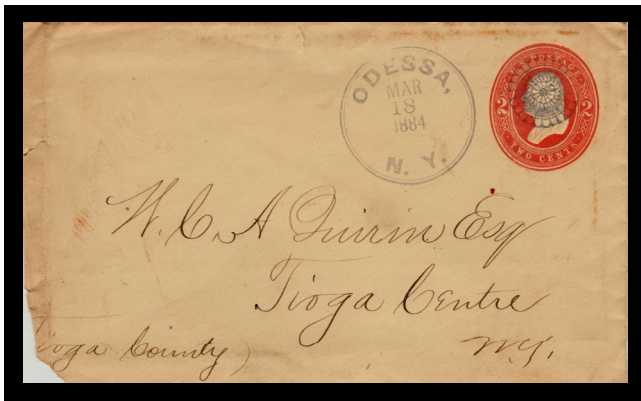 ODESSA,
MAR
18
1884
N. Y.
U.S. POSTAGE
2 2
TWO CENTS
W. C. A Quirin Esq
Tioga Centre
N.Y.
Tioga County)